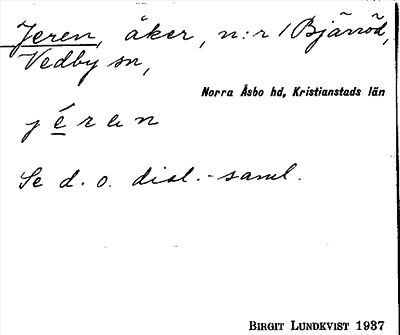 Jeren, åker, n:r 1 Bjärröd,
Vedby sn,
Norra Åsbo hd, Kristianstads län
j é r e n
Se d. o. dial.-saml.
BIRGIT LUNDKVIST 1937